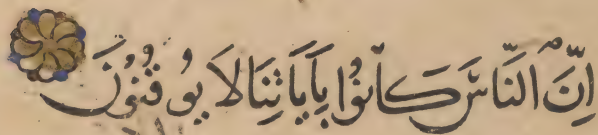 اِنَّ النَّاسَ كَانُوْا بِاٰيَاتِنَا لَا يُوقِنُوْنَ